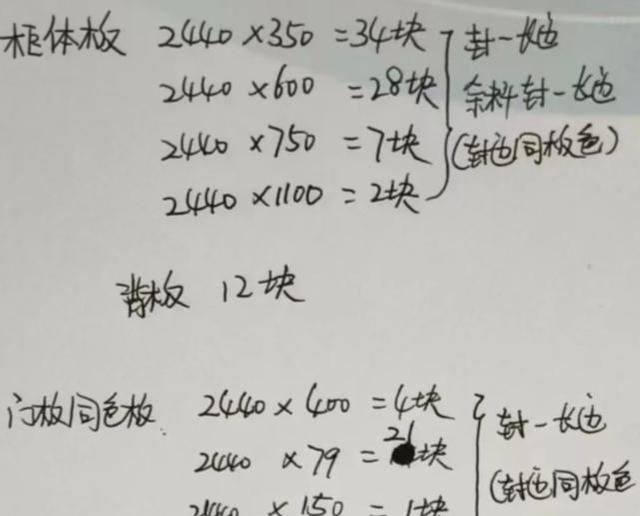 柜体板 2440×350=34块 封一长边
2440×600=28块 余料封一长边
2440×750=7块 (封边同板色)
2440×1100=2块
背板 12块
门板同色板. 2440×400=4块 封一长边
2440×79=21块 (封边同板色
2440×150=1块